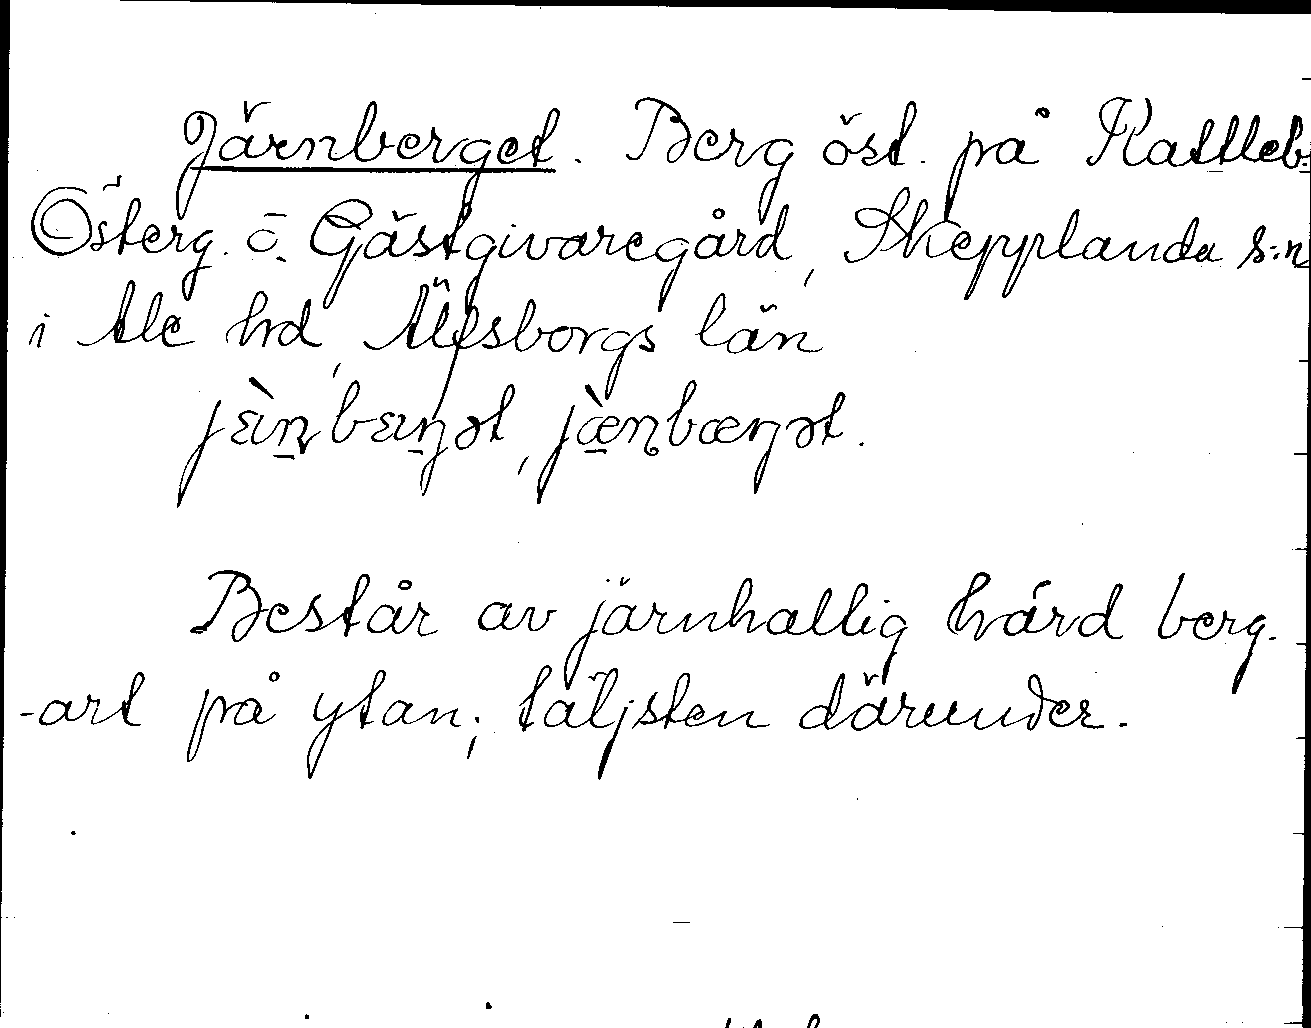 Järnberget. Berg öst. på Kattleb:
Österg. o. Gästgivaregård, Skepplanda s:n
i Ale hd, Älfsborgs län
jèɩn̠bɛɩŋət, jæ̀n̠bæŋət.
Består av järnhallig hård berg-
-art på ytan; täljsten därunder.